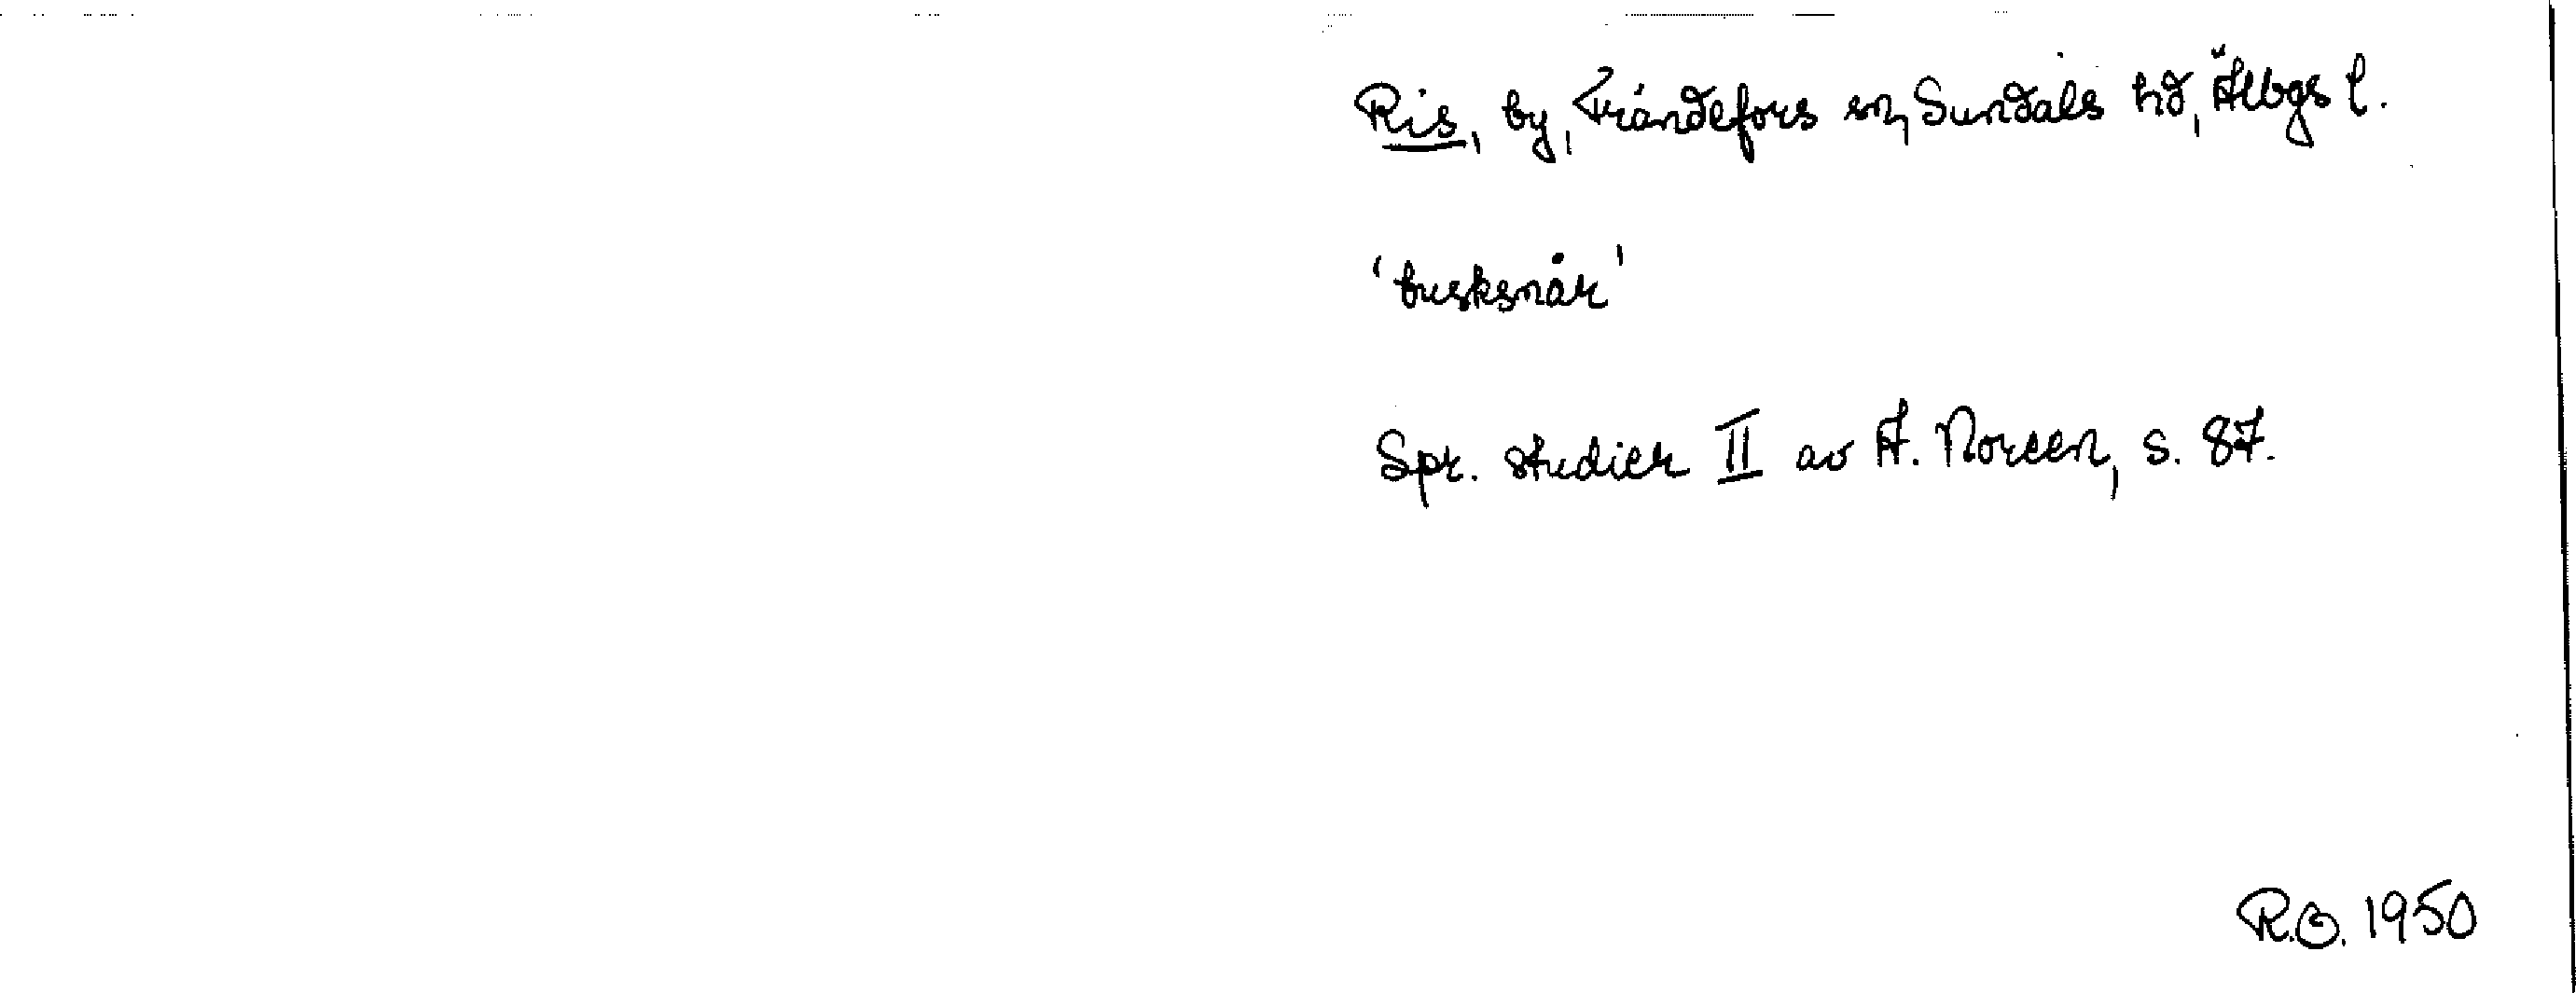 Ris, by, Frändefors sn, Sundals hd, Älbgs l.
'busksnår'
Spr. studier II av A. Noreen, s. 87.
R.O. 1950